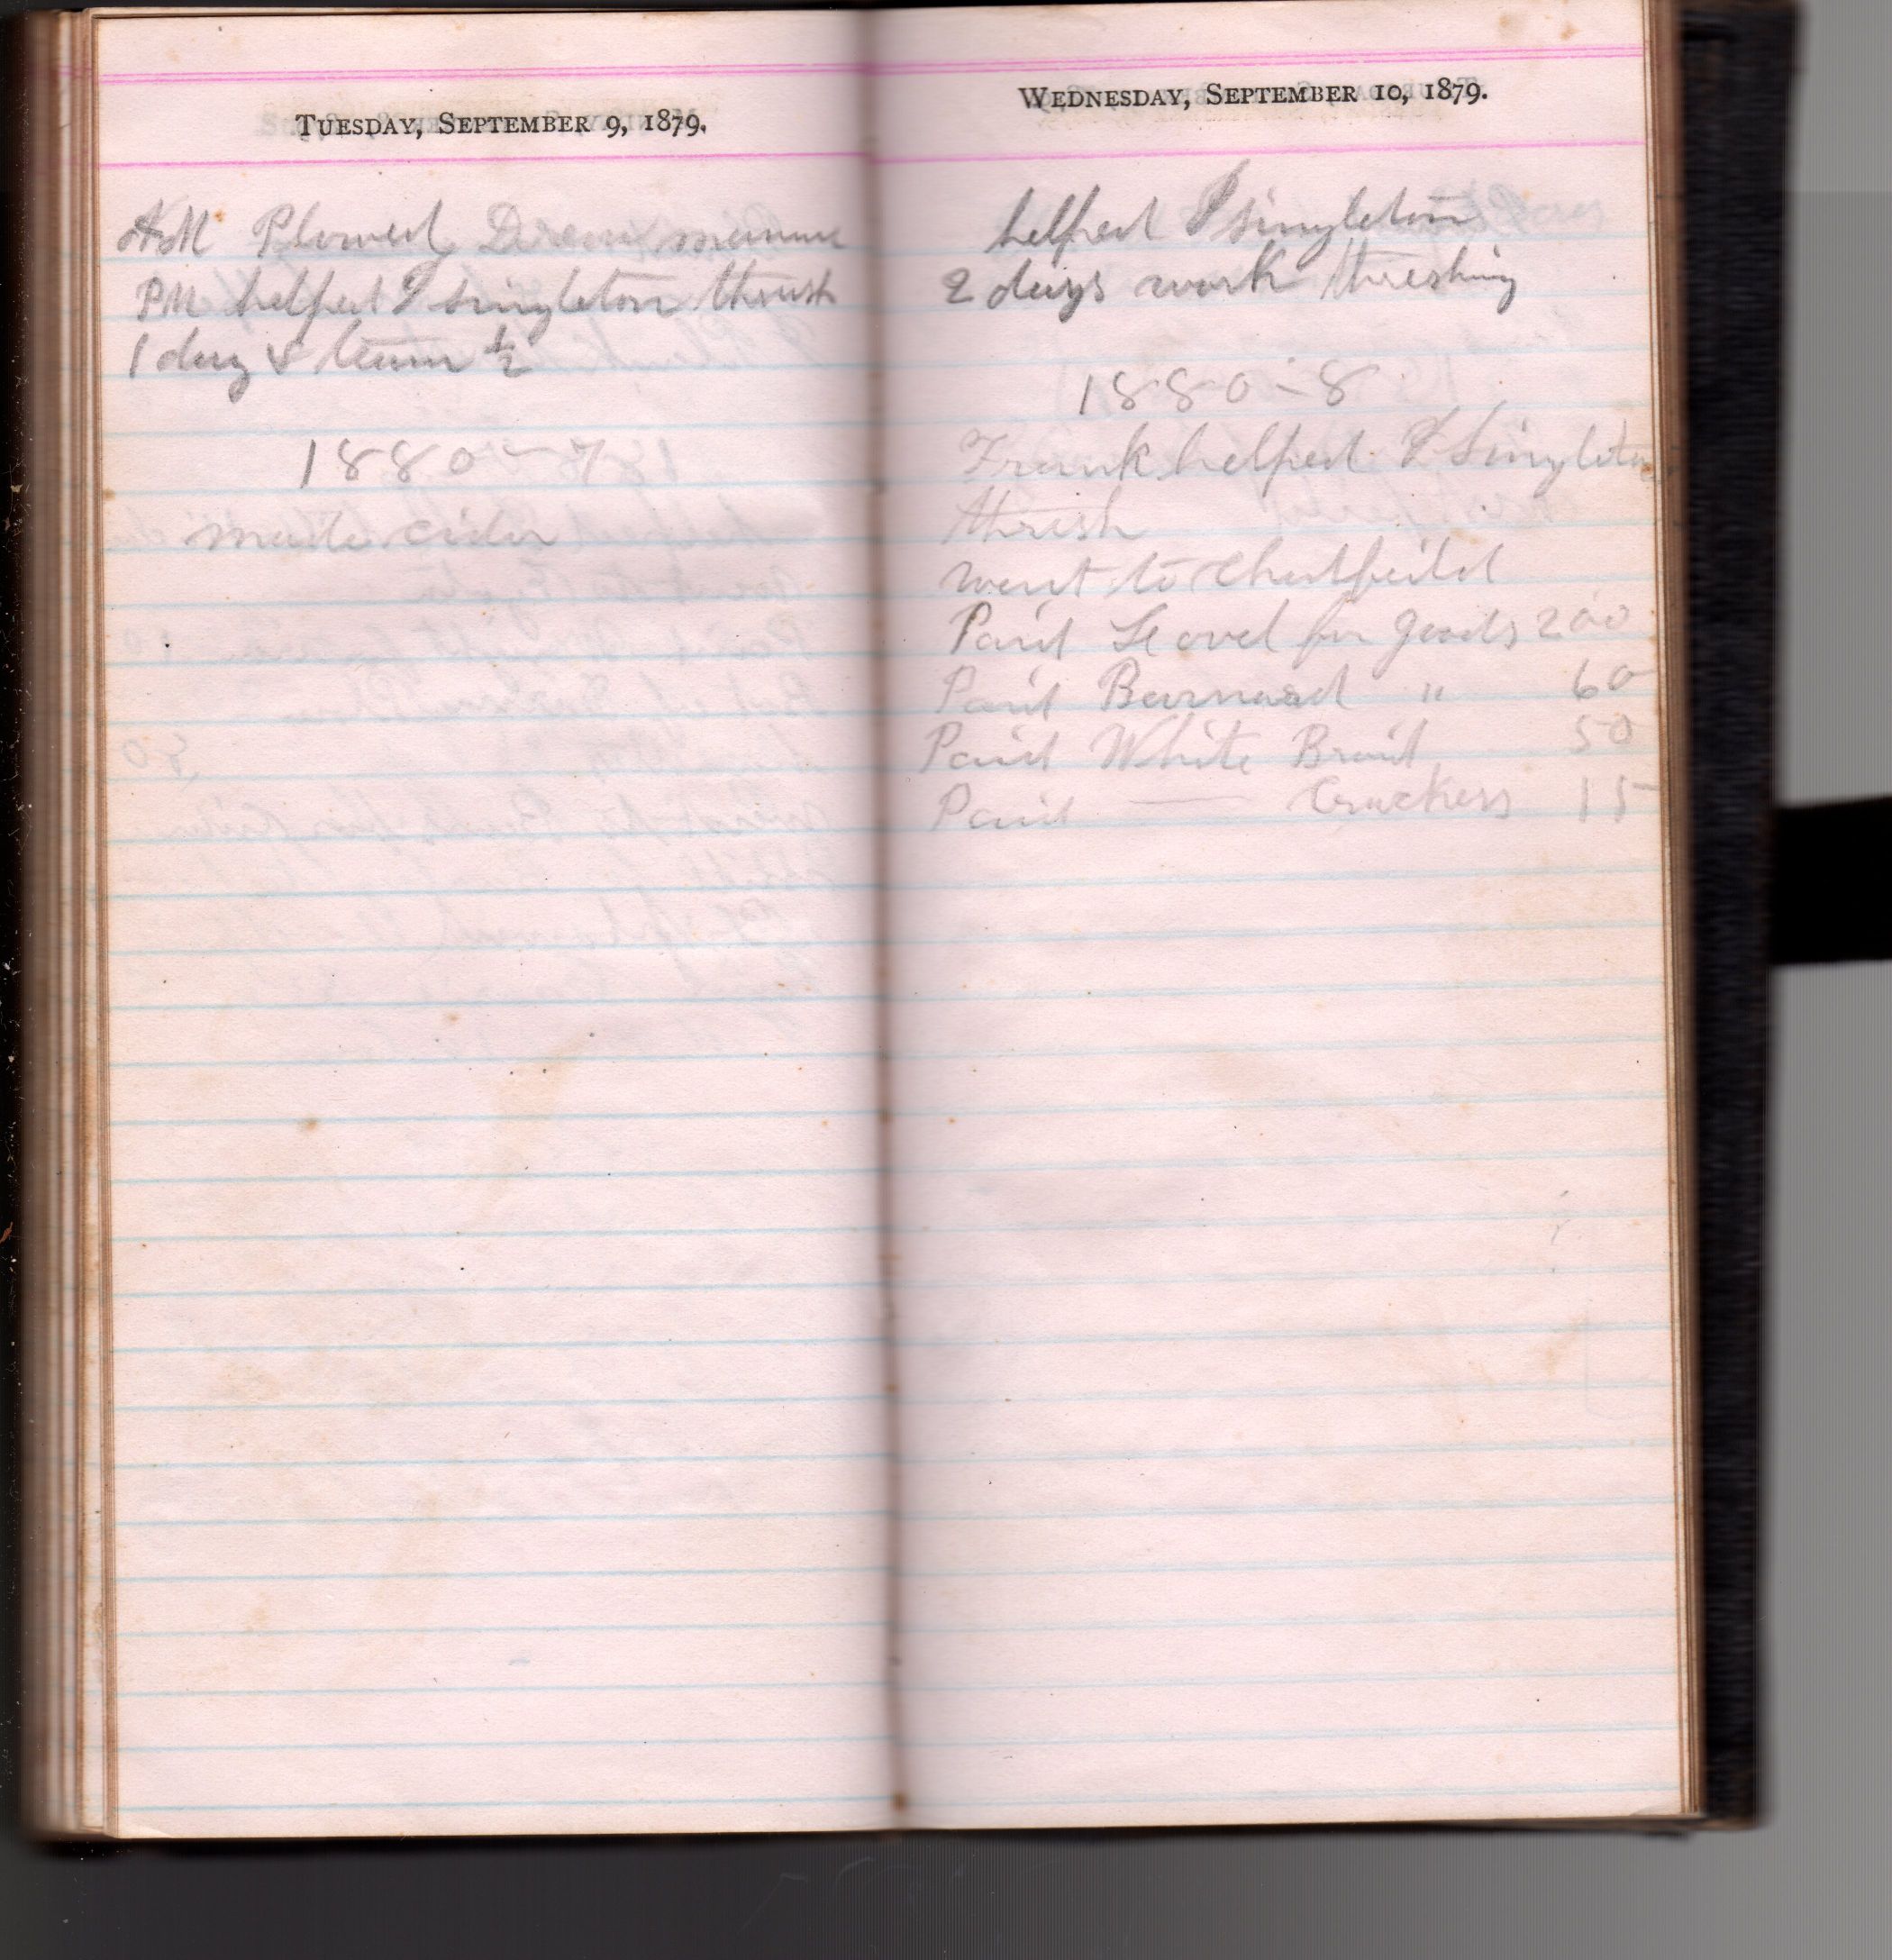 Tuesday, September 9, 1879.
AM Plowed Drew manure
PM helped J Singleton thrush
1 day & team ½
1880 - 7
made cider
Wednesday, September 10, 1879.
helped J Singleton
2 days work threshing
1880 - 8
Frank helped J Singleton
thresh
went to Chatfeild
Paid for goods 200
Paid Barnard " 60
Paid White Braid 50
Paid — Crackers 15